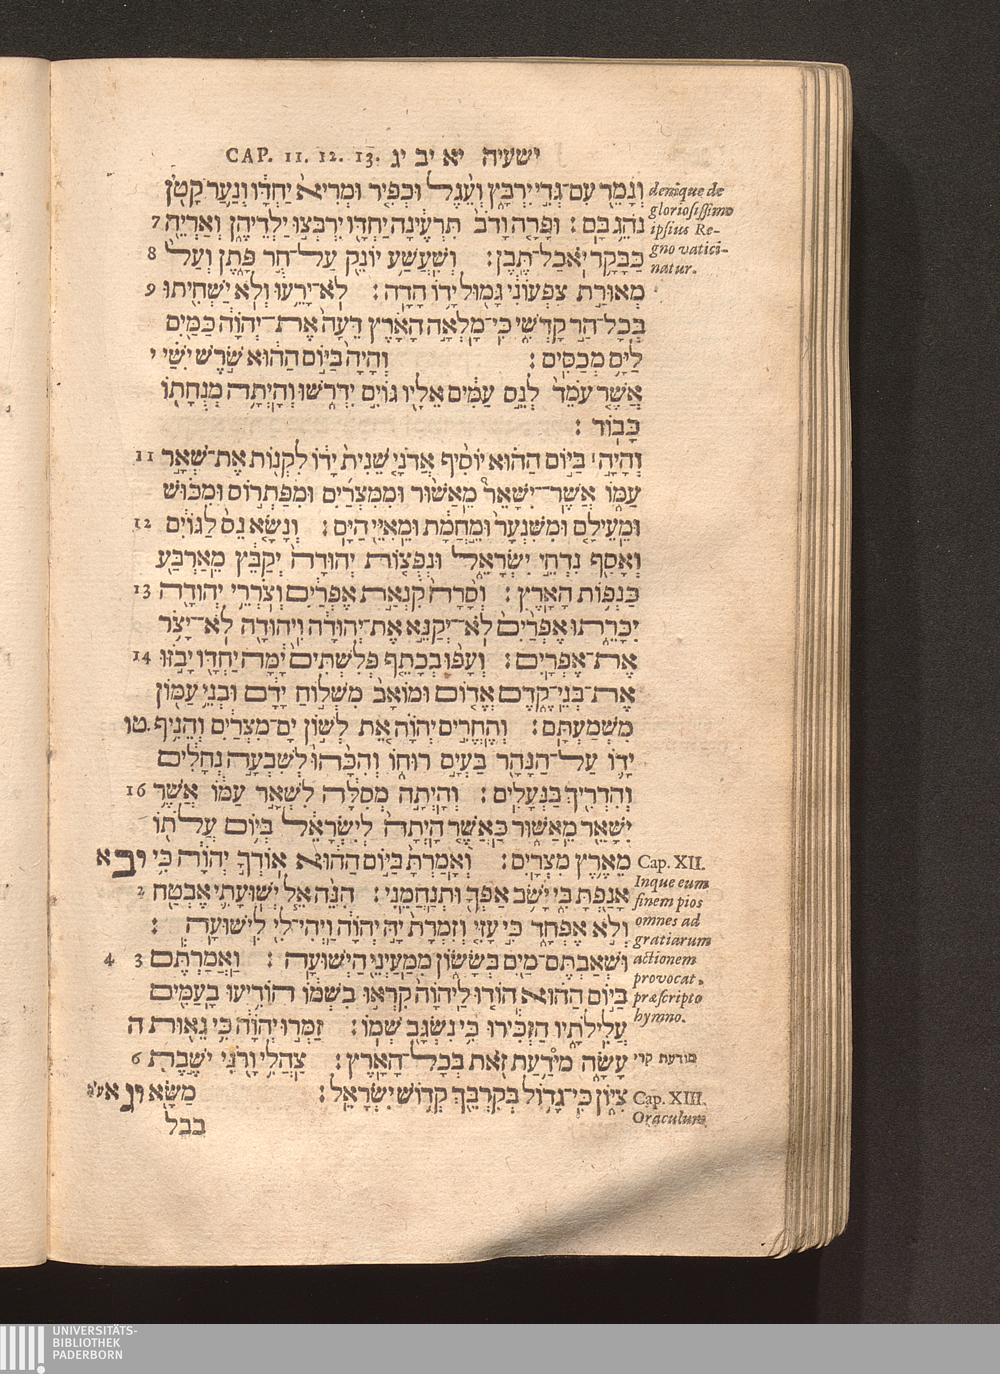 CAP. 11. 12. 13. ישעיה יא יב יג
וְנָמֵר עִם־גְּדִי יִרְבָּץ וְעֵגֶל וּכְפִיר וּמְרִיא יַחְדָּו וְנַעַר קָטֹן
denique de
gloriosissimo
נֹהֵג בָּם׃ וּפָרָה וָדֹב תִּרְעֶינָה יַחְדָּו יִרְבְּצוּ יַלְדֵיהֶן וְאַרְיֵה 7
ipsius Re-
כַּבָּקָר יֹאכַל־תֶּבֶן׃ וְשִׁעֲשַׁע יוֹנֵק עַל־חֻר פָּתֶן וְעַל 8
gno vatici-
natur.
מְאוּרַת צִפְעוֹנִי גָּמוּל יָדוֹ הָדָה׃ לֹא־יָרֵעוּ וְלֹא יַשְׁחִיתוּ 9
בְּכָל־הַר קָדְשִׁי כִּי־מָלְאָה הָאָרֶץ דֵּעָה אֶת־יְהוָֹה כַּמַּיִם
לַיָּם מְכַסִּים׃ וְהָיָה בַּיּוֹם הַהוּא שֹׁרֶשׁ יִשַׁי י
אֲשֶׁר עֹמֵד לְנֵס עַמִּים אֵלָיו גּוֹיִם יִדְרֹשׁוּ וְהָיְתָה מְנֻחָתוֹ
כָּבוֹד׃
וְהָיָה׀ בַּיּוֹם הַהוּא יוֹסִיף אֲדֹנָי שֵׁנִית יָדוֹ לִקְנוֹת אֶת־שְׁאָר 11
עַמּוֹ אֲשֶׁר־יִשָּׁאֵר מֵאַשּׁוּר וּמִמִּצְרַיִם וּמִפַּתְרוֹס וּמִכּוּשׁ
וּמֵעֵילָם וּמִשִּׁנְעָר וּמֵחֲמָת וּמֵאִיֵּי הַיָּם׃ וְנָשָׂא נֵס לַגּוֹיִם 12
וְאָסַף נִדְחֵי יִשְׂרָאֵל וּנְפֻצוֹת יְהוּדָה יְקַבֵּץ מֵאַרְבַּע
כַּנְפוֹת הָאָרֶץ׃ וְסָרָה קִנְאַת אֶפְרַיִם וְצֹרְרֵי יְהוּדָה 13
יִכָּרֵתוּ אֶפְרַיִם לֹא־יְקַנֵּא אֶת־יְהוּדָה וִיהוּדָה לֹא־יָצֹר
אֶת־אֶפְרָיִם׃ וְעָפוּ בְכָתֵף פְּלִשְׁתִּים יָמָּה יַחְדָּו יָבֹזּוּ 14
אֶת־בְּנֵי־קֶדֶם אֱדוֹם וּמוֹאָב מִשְׁלוֹחַ יָדָם וּבְנֵי עַמּוֹן
מִשְׁמַעְתָּם׃ וְהֶחֱרִים יְהוָֹה אֵת לְשׁוֹן יָם־מִצְרַיִם וְהֵנִיף טו.
יָדוֹ עַל־הַנָּהָר בַּעְיָם רוּחוֹ וְהִכָּהוּ לְשִׁבְעָה נְחָלִים
וְהִדְרִיךְ בַּנְּעָלִים׃ וְהָיְתָה מְסִלָּה לִשְׁאָר עַמּוֹ אֲשֶׁר 16
יִשָּׁאֵר מֵאַשּׁוּר כַּאֲשֶׁר הָיְתָה לְיִשְׂרָאֵל בְּיוֹם עֲלֹתוֹ
מֵאֶרֶץ מִצְרָיִם׃ וְאָמַרְתָּ בַּיּוֹם הַהוּא אוֹדְךָ יְהוָֹה כִּי יב א
Cap. XII.
Inque eum
אָנַפְתָּ בִּי יָשֹׁב אַפְּךָ וּתְנַחֲמֵנִי׃ הִנֵּה אֵל יְשׁוּעָתִי אֶבְטַח 2
finem pios
omnes ad
וְלֹא אֶפְחָד כִּי עָזִּי וְזִמְרָת יָהּ יְהוָֹה וַיְהִי־לִי לִישׁוּעָה׃
gratiarum
וּשְׁאַבְתֶּם־מַיִם בְּשָׂשׂוֹן מִמַּעַיְנֵי הַיְשׁוּעָה׃ וַאֲמַרְתֶּם 3 4
actionem
provocat,
בַּיּוֹם הַהוּא הוֹדוּ לַיהוָֹה קִרְאוּ בִשְׁמוֹ הוֹדִיעוּ בָעַמִּים
præscripto
hymno.
עֲלִילֹתָיו הַזְכִּירוּ כִּי נִשְׂגָּב שְׁמוֹ׃ זַמְּרוּ יְהוָֹה כִּי גֵאוּת ה
עָשָׂה מְיֻדַּעַת זֹאת בְּכָל־הָאָרֶץ׃ צַהֲלִי וָרֹנִּי יֹשֶׁבֶת 6
מודעת קרי
צִיּוֹן כִּי־גָדוֹל בְּקִרְבֵּךְ קְדוֹשׁ יִשְׂרָאֵל׃ מַשָּׂא יג א
Cap. XIII.
Oraculum
בבל
UNIVERSITÄTS-
BIBLIOTHEK
PADERBORN